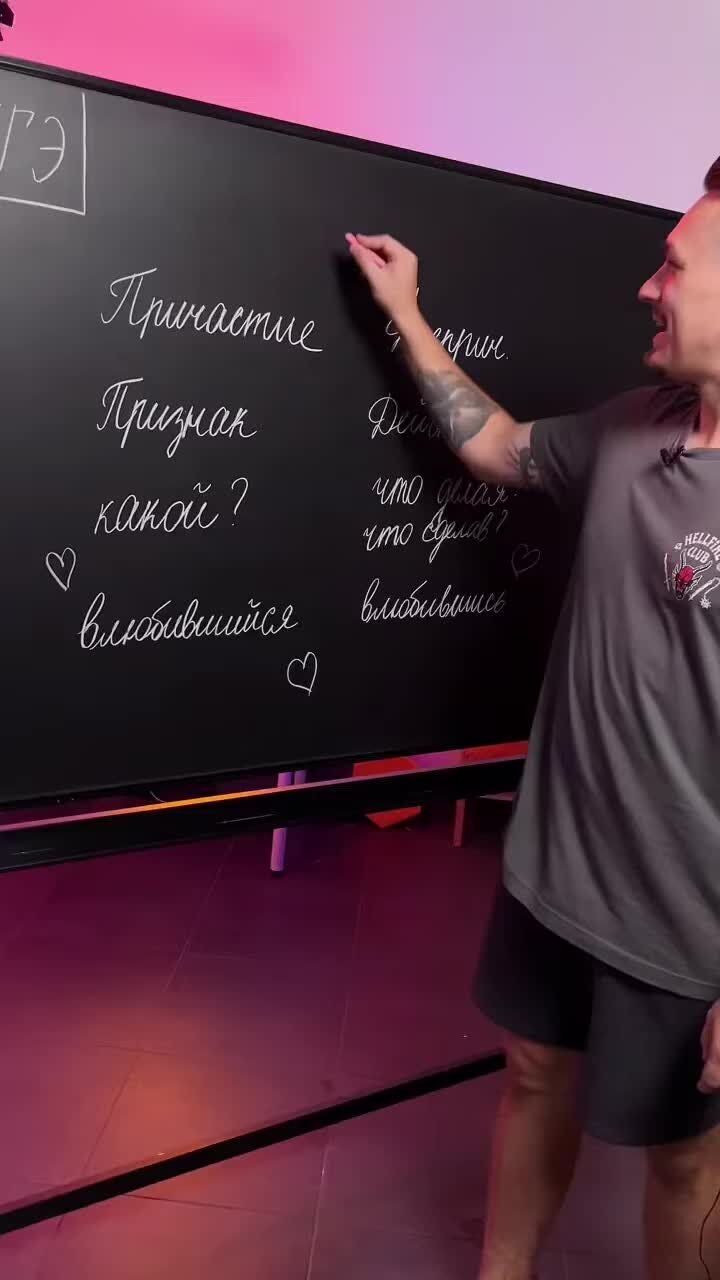 ГЭ
Причастие
Признак
какой?
что делая
что сделав?
влюбившийся
влюбившись
HELLFIRE
CLUB